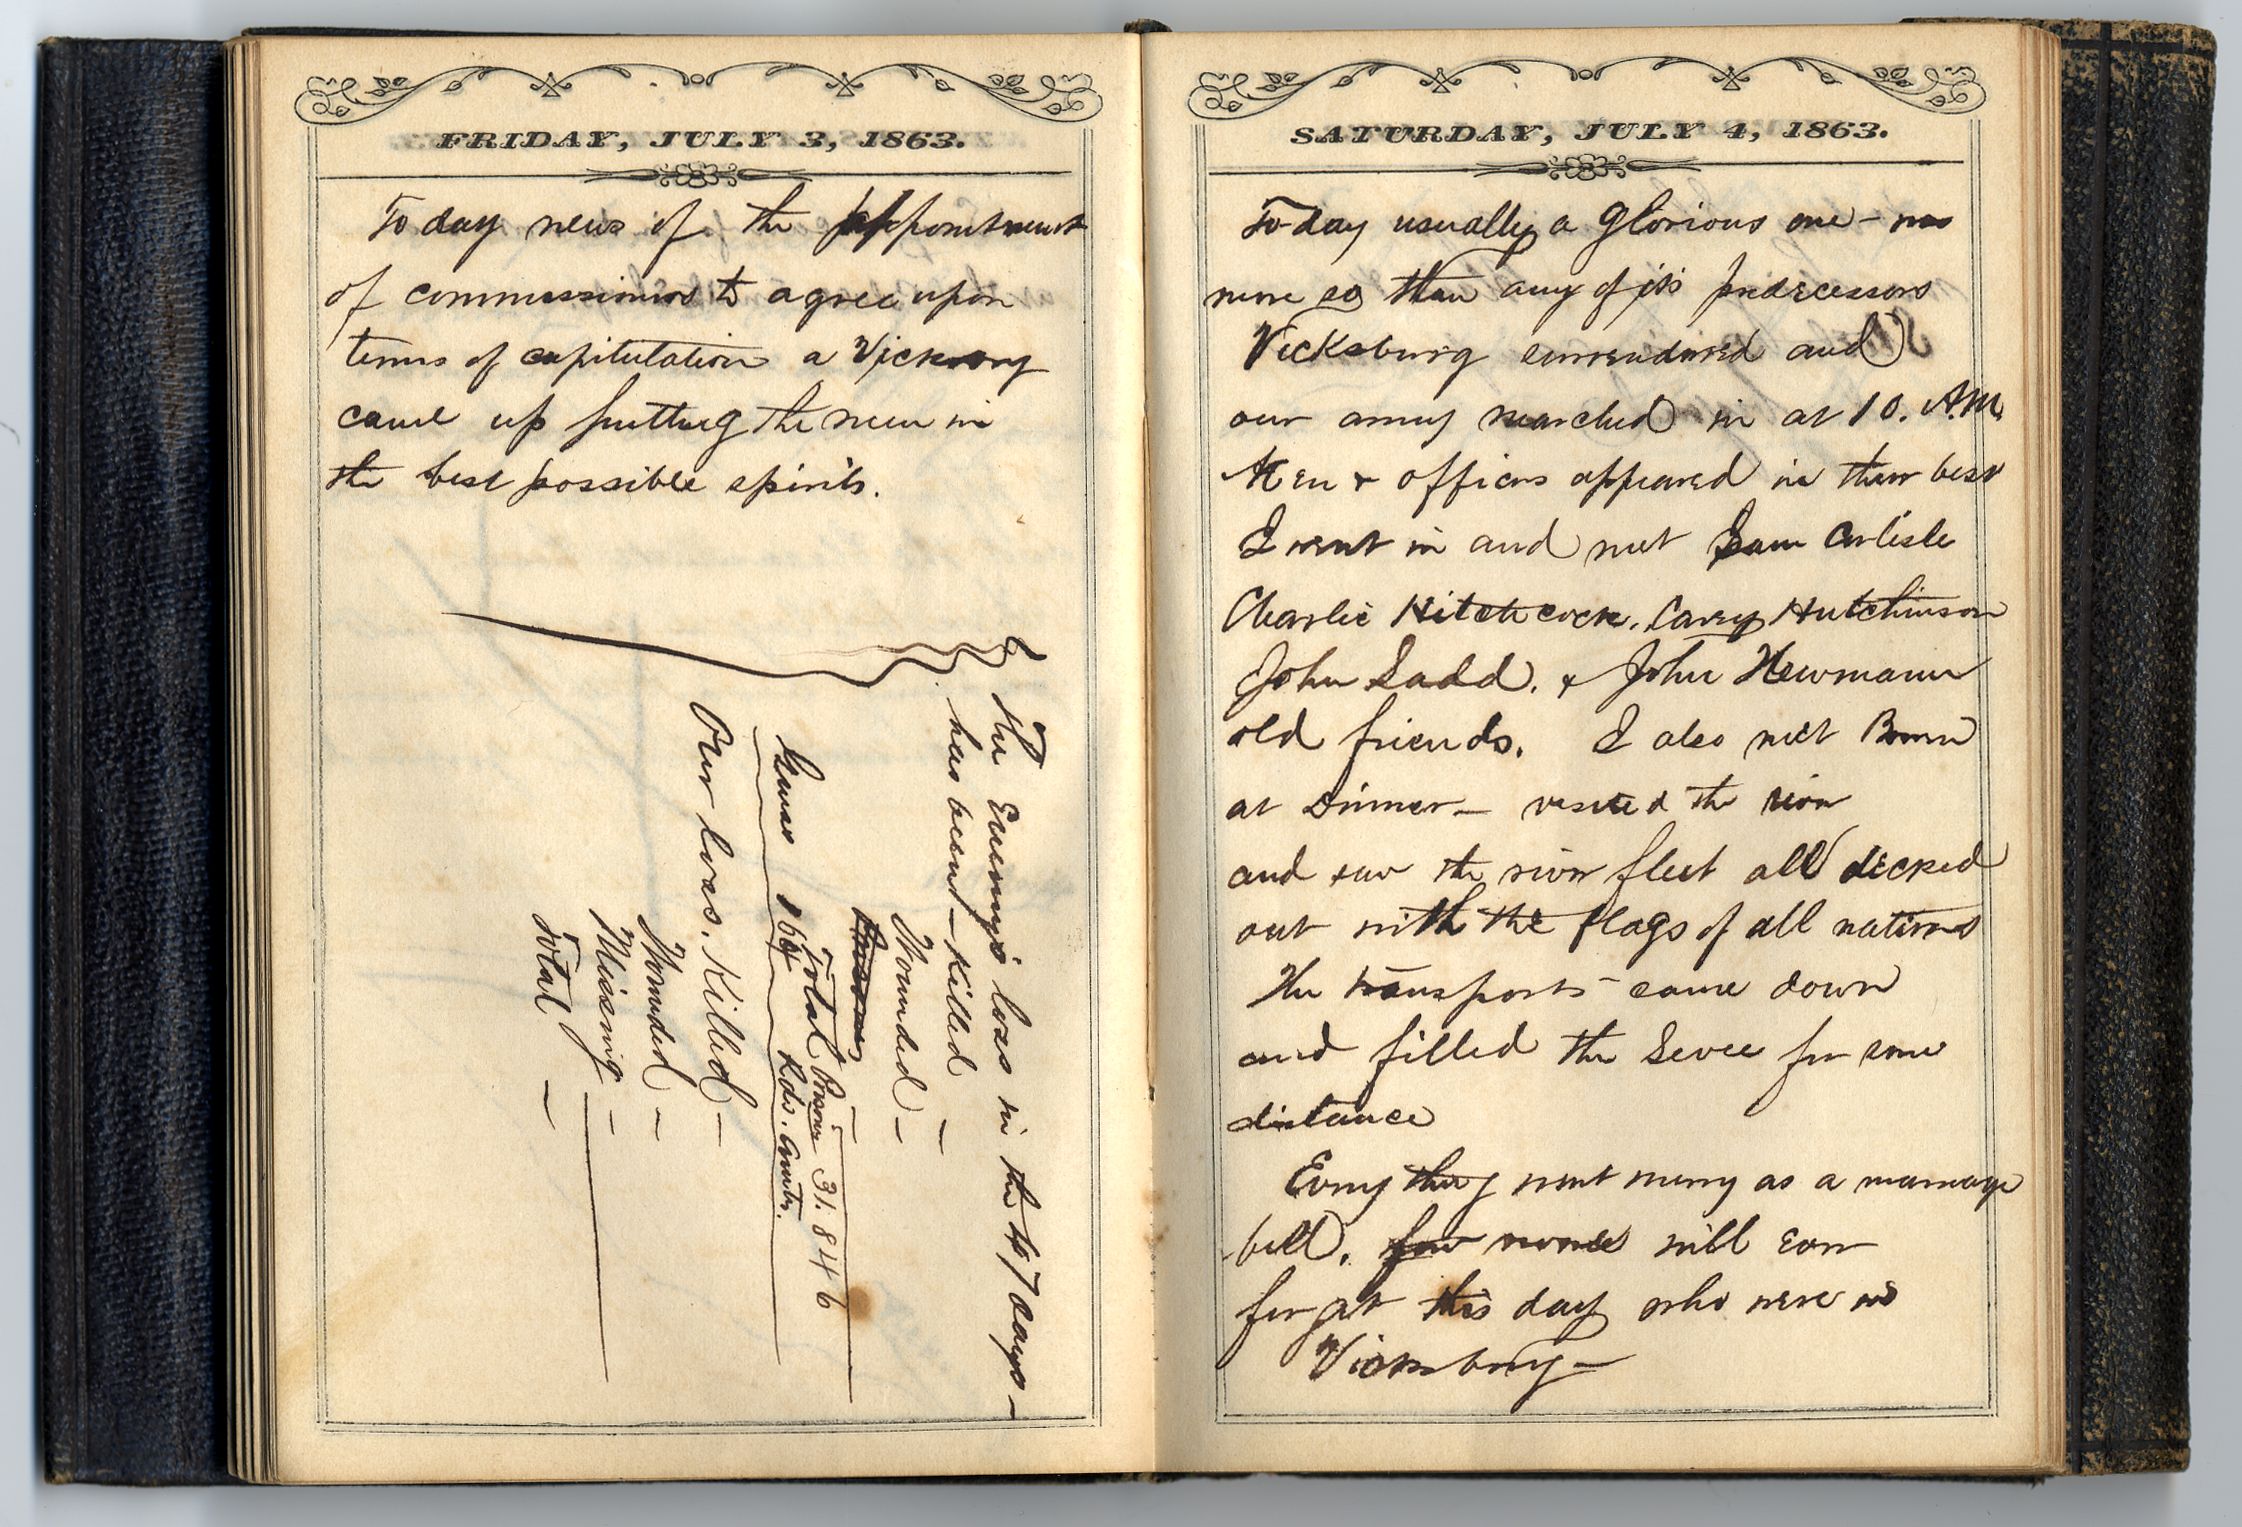 FRIDAY, JULY 3, 1863.
To day news of the appointment
of commissioners to agree upon
terms of capitulation a Vicksburg
came up putting the men in
the best possible spirits.
The Enemy's loss in the 47 days—
has been — Killed —
Wounded —
Total Prisoners 31.846
Guns 164 Rds. Amtn.
Our loss. Killed —
Wounded —
Missing —
Total —
SATURDAY, JULY 4, 1863.
To-day usually a Glorious one — was
more so than any of its predecessors
Vicksburg surrendered and
our army marched in at 10. A.M.
Men & officers appeared in their best
I went in and met Sam Carlisle
Charlie Hitchcock. Carey Hutchinson
John Ladd. & John Newmann
old friends. I also met Bowen
at Dinner — visited the river
and saw the river fleet all decked
out with the flags of all nations
The transports came down
and filled the Levee for some
distance
Every thing went merry as a marriage
bell. few none will ever
forget this day who were in
Vicksburg —